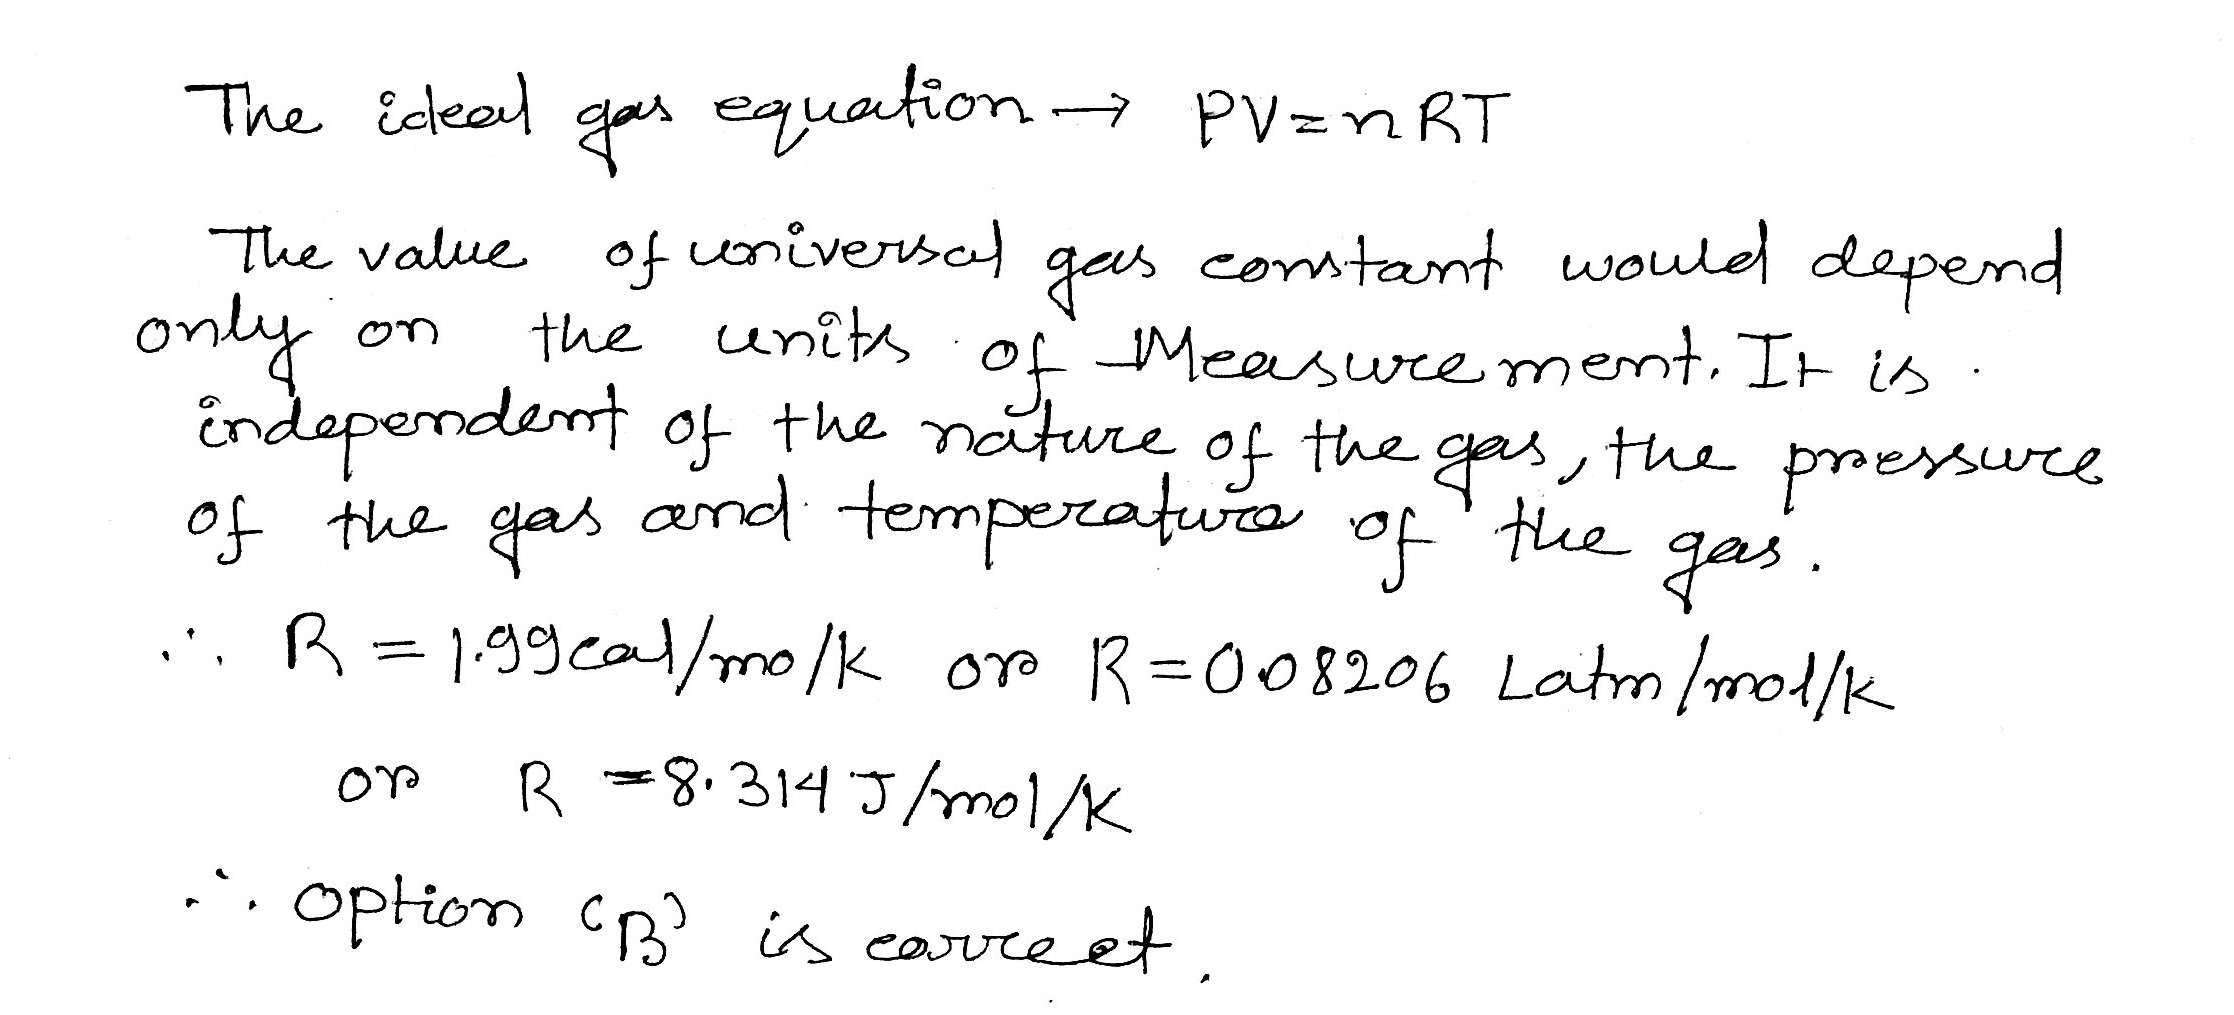 The ideal gas equation → PV=nRT
The value of universal gas constant would depend
only on the units of Measurement. It is
independent of the nature of the gas, the pressure
of the gas and temperature of the gas.
∴ R = 1.99cal/mo/k or R=0.08206 Latm/mol/k
or R =8.314 J/mol/K
∴ option (B) is correct.